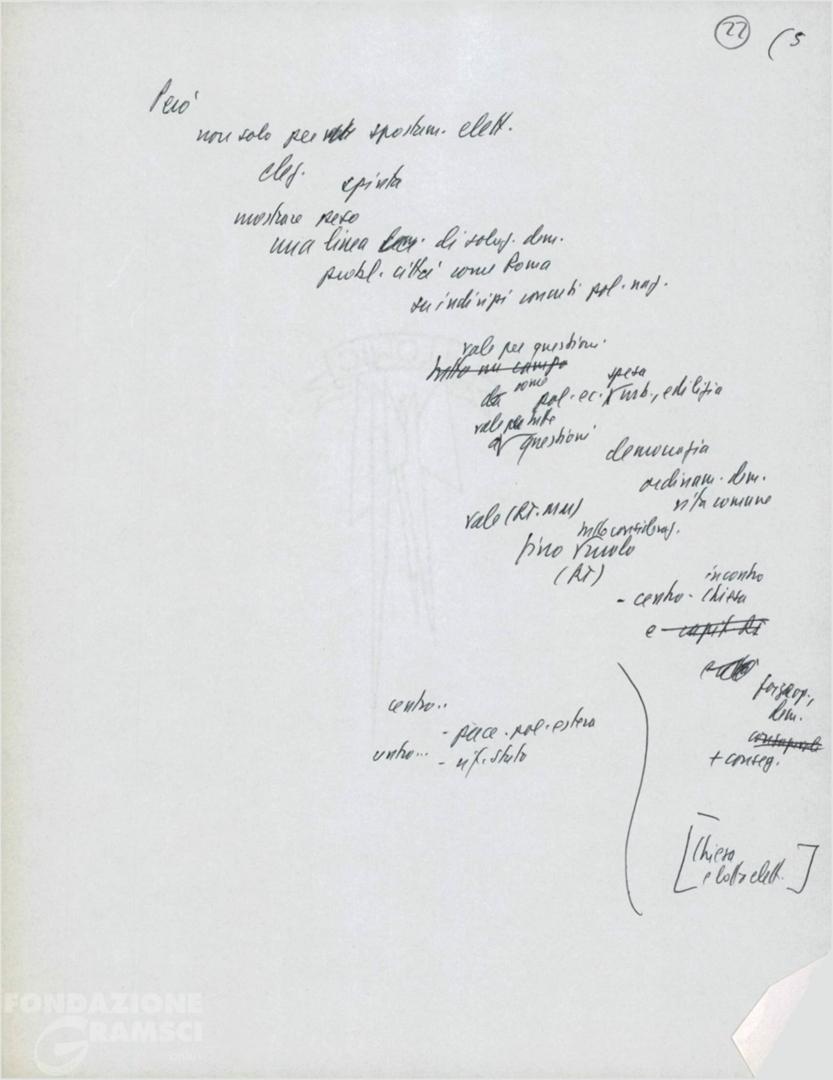 22 (5
Però
non solo per spostam. elett.
eleg. spinta
mostrare peso
una linea di soluz. dem.
probl. città come Roma
su indirizzi concreti pol. naz.
vale per question.
tutto un campo
come spesa
da pol. ec. urb., edilizia
vale per tutte
questioni
democrazia
ordinam. dem.
vita comune
vale (RI-MM)
tutto considerag.
fino ruolo
(RI)
incontro
- centro - Chiesa
e capit RI
forze op.,
dem.
centro..
- pace - pol. estera
contro...
- rif. stato
+ conseg.
[Chiesa
e lotta elett.]
FONDAZIONE
GRAMSCI